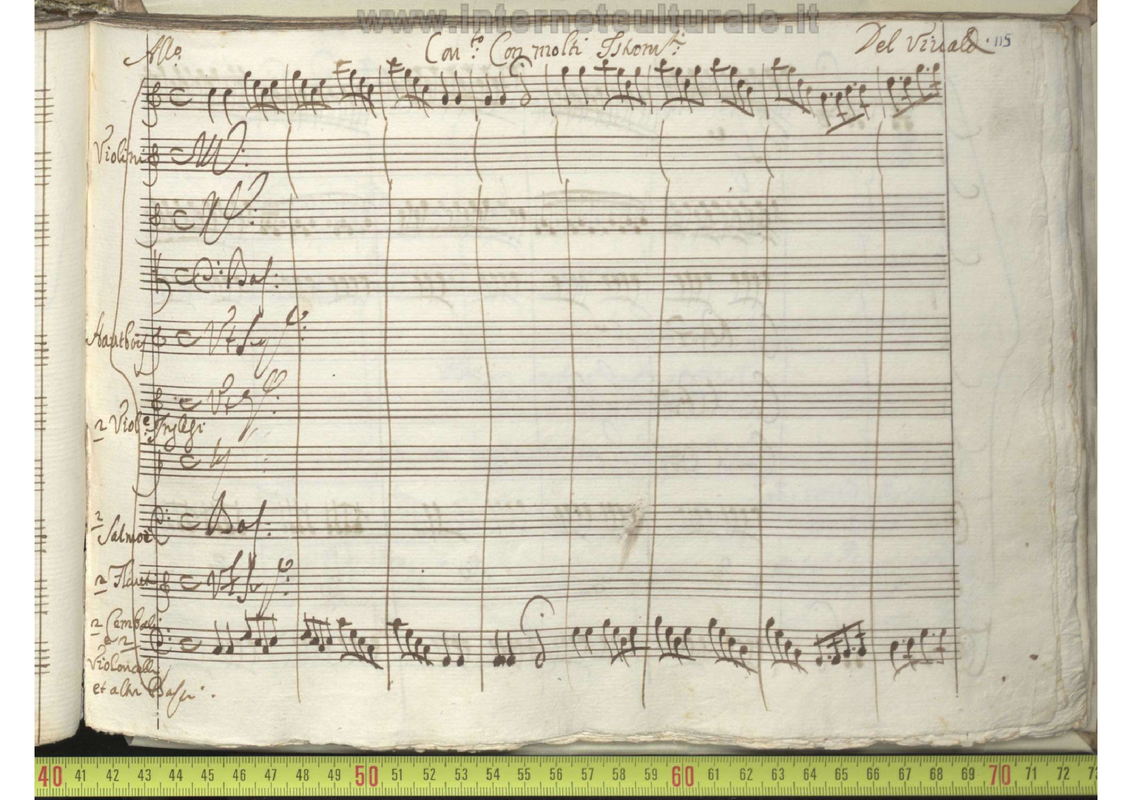 www.internetculturale.it
All.º Con.to Con molti Istrom.ti Del Viuald 115
Violini
Hautbois
2 Viol.e Inglesi
Bas:
2 Salmoè
Bas:
2 Flauti
2 Cembali
e 2
Violoncelli
et altri Bassi
40 41 42 43 44 45 46 47 48 49 50 51 52 53 54 55 56 57 58 59 60 61 62 63 64 65 66 67 68 69 70 71 72 73